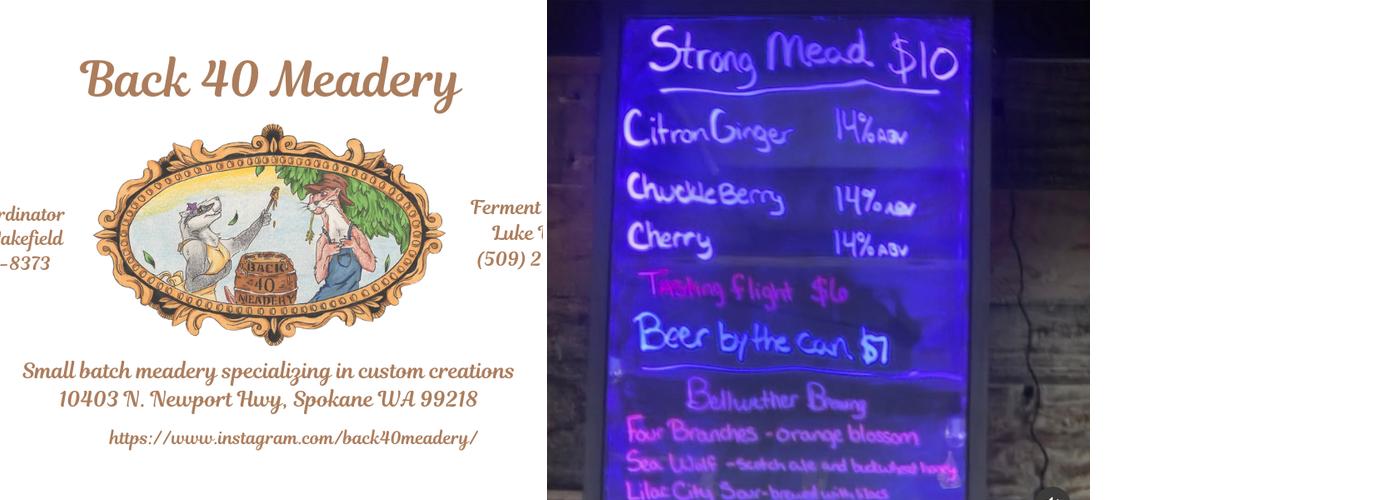 Back 40 Meadery
rdinator
akefield
-8373
BACK
40
MEADERY
Ferment
Luke
(509) 2
Small batch meadery specializing in custom creations
10403 N. Newport Hwy, Spokane WA 99218
https://www.instagram.com/back40meadery/
Strong Mead $10
Citron Ginger 14% ABV
ChuckleBerry 14% ABV
Cherry 14% ABV
Tasting flight $6
Beer by the can $7
Bellwether Brewing
Four Branches - orange blossom
Sea Wolf - scotch ale and buckwheat honey
Lilac City Sour - brewed with lilacs